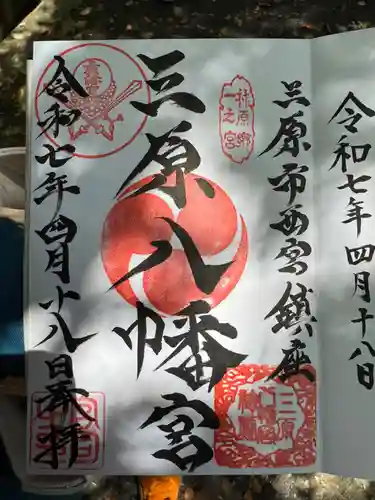 令和七年四月十八日
三原市西宮鎮座
柞原郷
一之宮
三原八幡宮
令和七年四月十八日奉拝